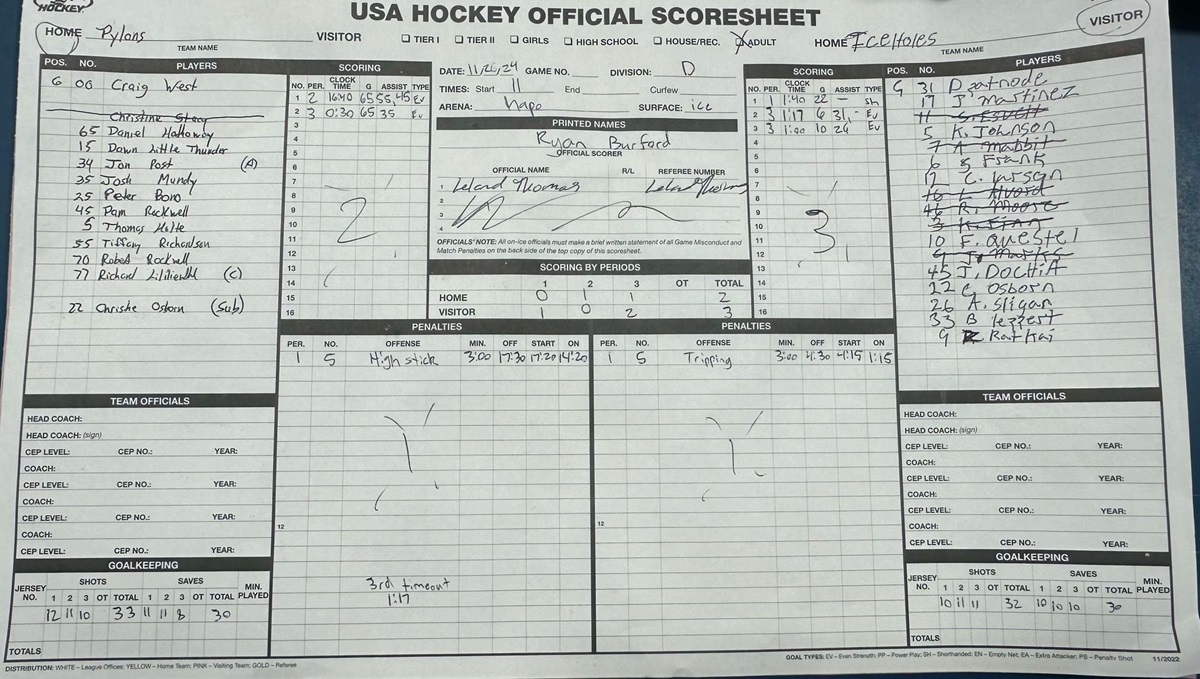 HOCKEY
USA HOCKEY OFFICIAL SCORESHEET
HOME Pylons
TEAM NAME
VISITOR
☐ TIER I ☐ TIER II ☐ GIRLS ☐ HIGH SCHOOL ☐ HOUSE/REC. ☒ ADULT
HOME IceHoles
TEAM NAME
VISITOR
POS. NO. PLAYERS
G 00 Craig West
Christine Stacy
65 Daniel Holloway
15 Dawn Little Thunder
34 Jon Post (A)
35 Josh Mundy
25 Peter Boro
45 Pam Rockwell
5 Thomas Holte
55 Tiffany Richardson
70 Robert Rockwell
77 Richard (C)
22 Christie Osborn (Sub)
SCORING
NO. PER. CLOCK TIME G ASSIST TYPE
1 2 16:40 65 55, 45 Ev
2 3 0:30 65 35 Ev
3
4
5
6
7
8
9
10
11
12
13
14
15
16
2
DATE: 11/26/24 GAME NO. DIVISION: D
TIMES: Start 11 End Curfew
ARENA: Napo SURFACE: ice
PRINTED NAMES
Ryan Burford
OFFICIAL SCORER
OFFICIAL NAME R/L REFEREE NUMBER
1 Leland Thomas Leland Thomas
2
3
4
OFFICIALS' NOTE: All on-ice officials must make a brief written statement of all Game Misconduct and
Match Penalties on the back side of the top copy of this scoresheet.
SCORING BY PERIODS
1 2 3 OT TOTAL
HOME 0 1 1 2
VISITOR 1 0 2 3
SCORING
NO. PER. CLOCK TIME G ASSIST TYPE
1 1 1:40 22 - Sh
2 3 1:17 6 31, - Ev
3 3 1:00 10 26 Ev
4
5
6
7
8
9
10
11
12
13
14
15
16
3
POS. NO. PLAYERS
G 31 D Patnode
17 J. Martinez
11
5 K. Johnson
7 A Mabbit
6 S Frank
12 C. Larson
16 L Alvord
46 R. Moore
3
10 F. Questel
9 J. Marks
45 J. DOCHiA
22 C Osborn
26 A. Sligar
33 B
9 R Rathai
PENALTIES
PER. NO. OFFENSE MIN. OFF START ON
1 5 High stick 3:00 17:30 17:20 14:20
12
3rd timeout
1:17
PENALTIES
PER. NO. OFFENSE MIN. OFF START ON
1 5 Tripping 3:00 4:30 4:15 1:15
12
TEAM OFFICIALS
HEAD COACH:
HEAD COACH: (sign)
CEP LEVEL: CEP NO.: YEAR:
COACH:
CEP LEVEL: CEP NO.: YEAR:
COACH:
CEP LEVEL: CEP NO.: YEAR:
COACH:
CEP LEVEL: CEP NO.: YEAR:
GOALKEEPING
JERSEY NO. SHOTS SAVES MIN. PLAYED
1 2 3 OT TOTAL 1 2 3 OT TOTAL
12 11 10 33 11 11 8 30
TOTALS
TEAM OFFICIALS
HEAD COACH:
HEAD COACH: (sign)
CEP LEVEL: CEP NO.: YEAR:
COACH:
CEP LEVEL: CEP NO.: YEAR:
COACH:
CEP LEVEL: CEP NO.: YEAR:
COACH:
CEP LEVEL: CEP NO.: YEAR:
GOALKEEPING
JERSEY NO. SHOTS SAVES MIN. PLAYED
1 2 3 OT TOTAL 1 2 3 OT TOTAL
10 11 11 32 10 10 10 30
TOTALS
DISTRIBUTION: WHITE – League Offices; YELLOW – Home Team; PINK – Visiting Team; GOLD – Referee
GOAL TYPES: EV – Even Strength; PP – Power Play; SH – Shorthanded; EN – Empty Net; EA – Extra Attacker; PS – Penalty Shot
11/2022